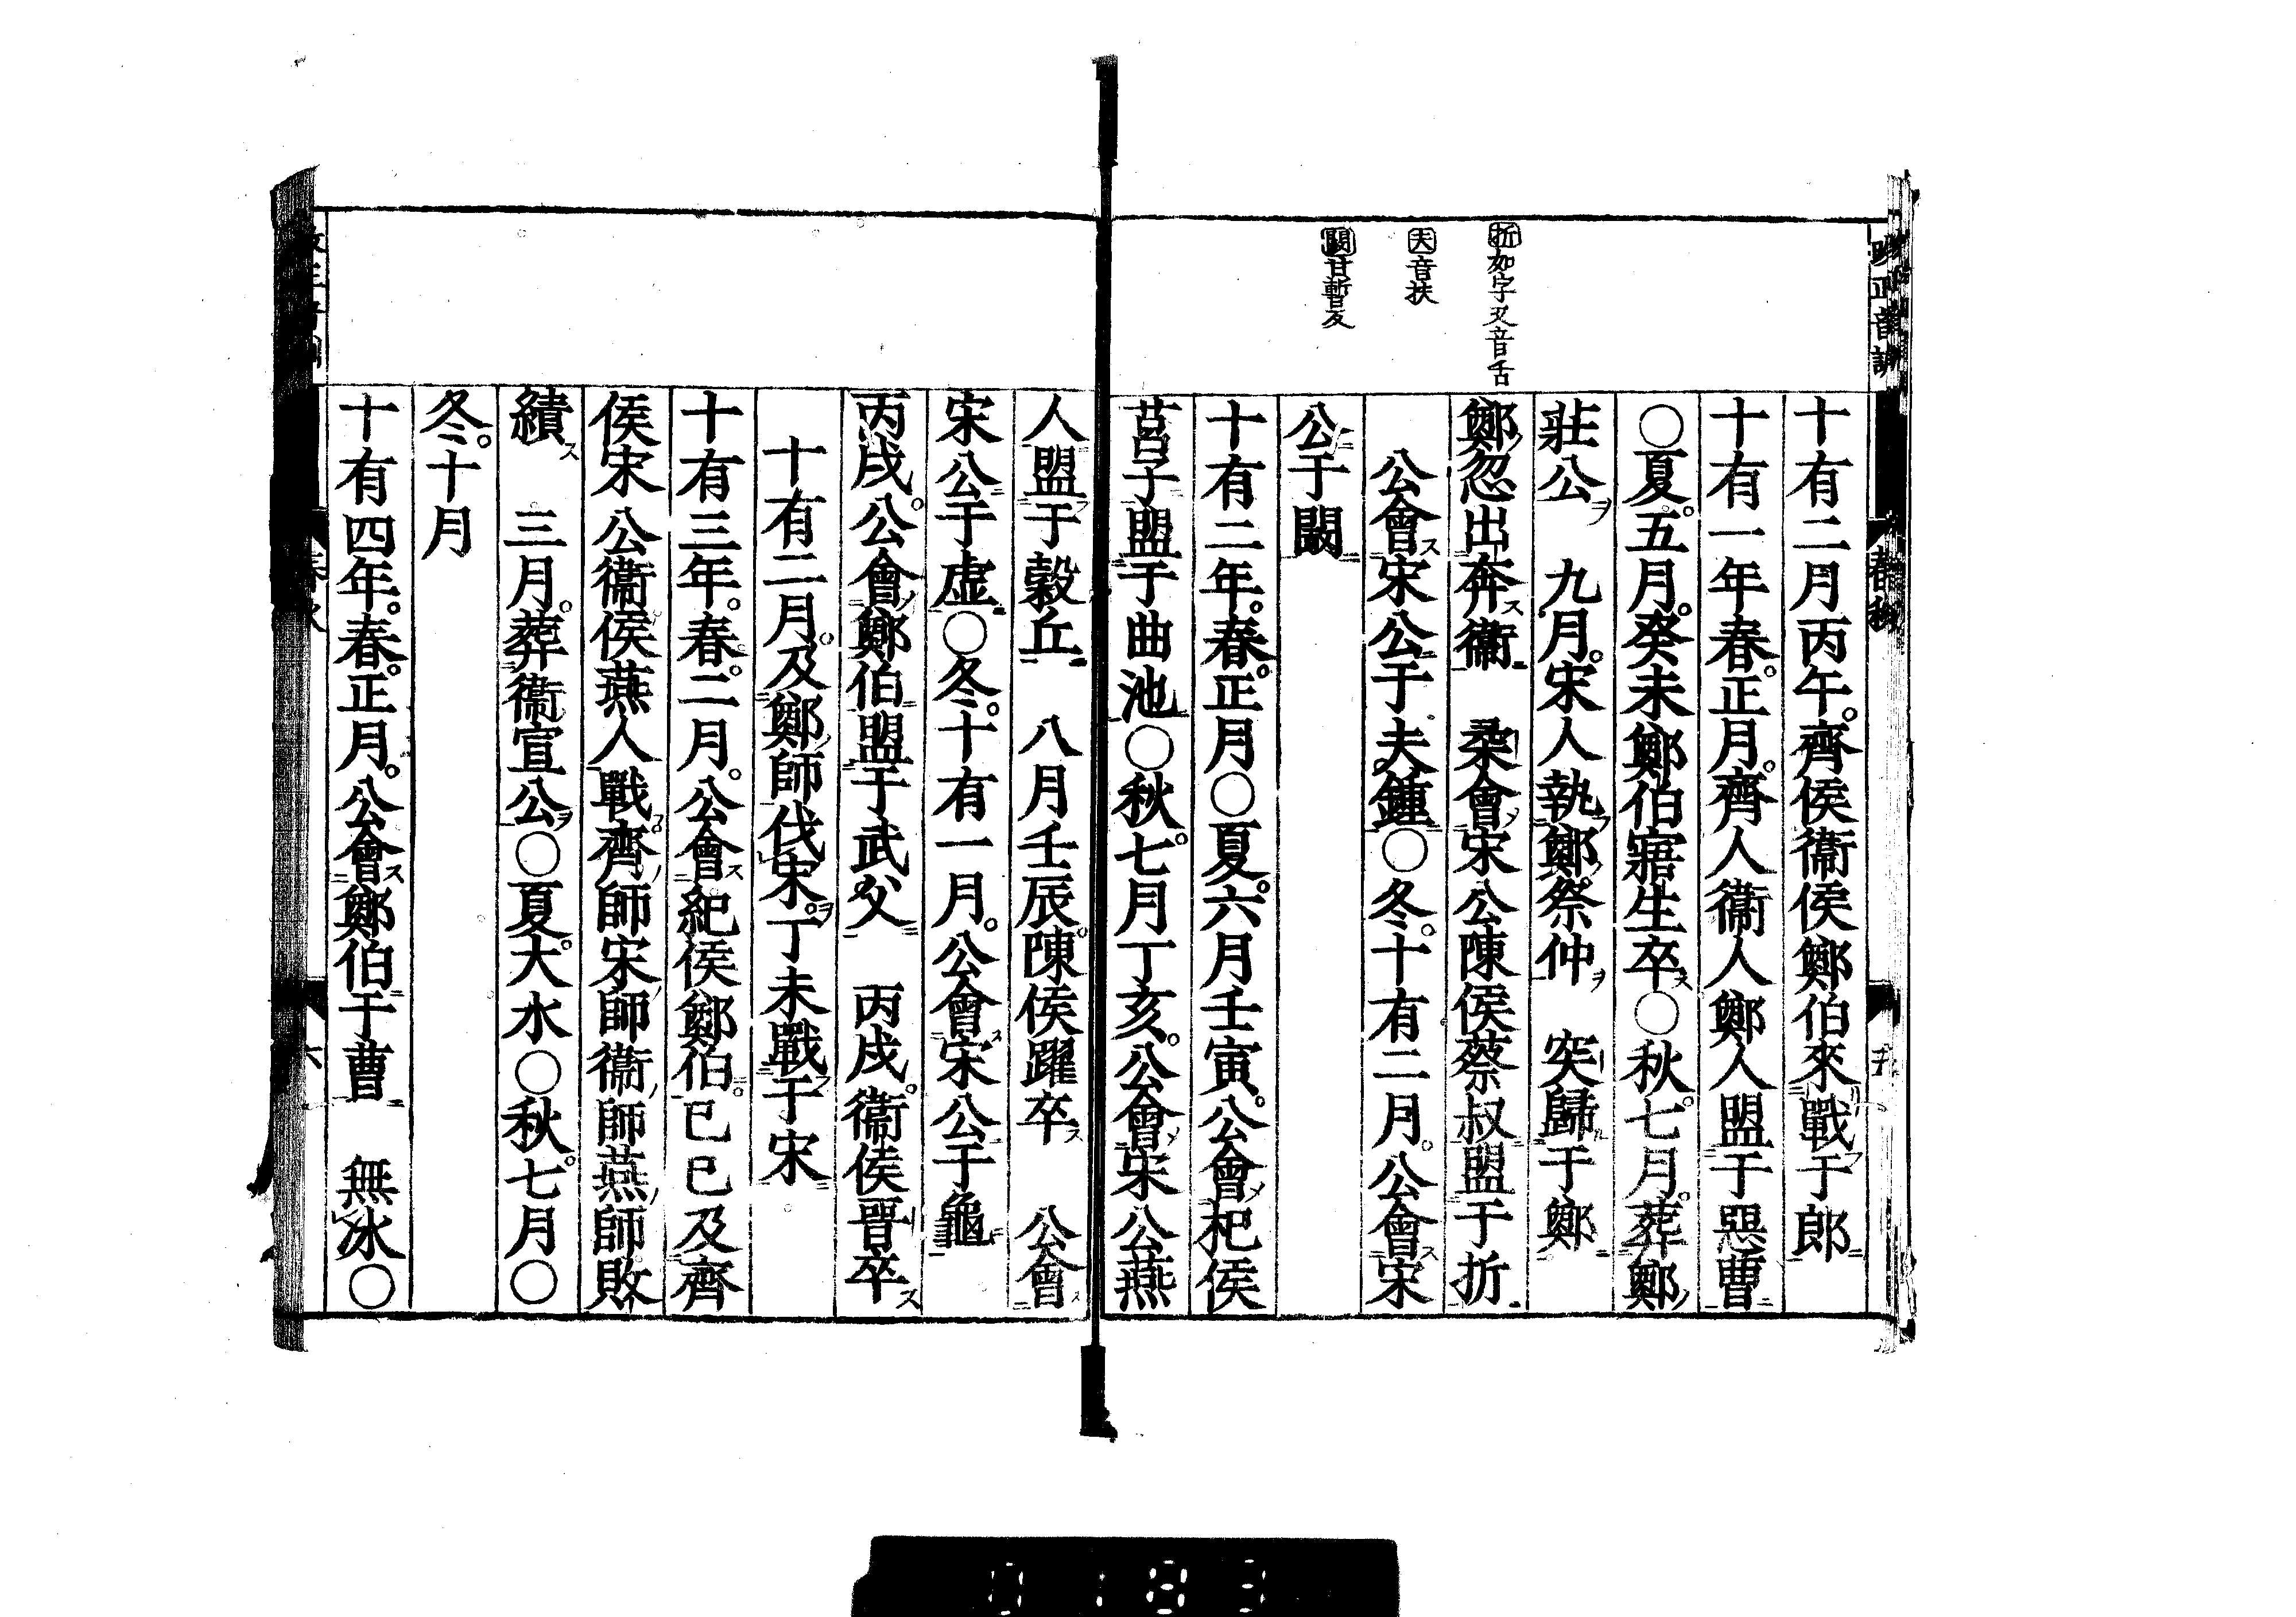 折如字又音舌
夫音扶
闞甘暫反
十有二月丙午。齊侯衞侯鄭伯來戰于郎
十有一年春。正月。齊人衞人鄭人盟于惡曹
○夏。五月。癸未鄭伯寤生卒ス○秋。七月。葬鄭ノ
莊公ヲ　九月。宋人執フ鄭ノ祭仲ヲ　突歸ル于鄭
鄭ノ忽出奔ス衞　柔會ノ宋公陳侯蔡叔盟于折
公會ス宋公于夫鍾○冬。十有二月。公會ス宋
公于闞
十有二年。春。正月○夏。六月壬寅。公會メ杞侯
莒子盟于曲池○秋。七月丁亥。公會メ宋公燕
人盟フ于穀丘　八月壬辰。陳侯躍卒ス　公會ス
宋公于虛○冬。十有一月。公會ス宋公于龜
丙戌。公會ノ鄭伯盟于武父　丙戌。衞侯晉卒ス
十有二月。及鄭ノ師伐宋。ヲ丁未戰フ于宋
十有三年。春。二月。公會ス紀侯鄭伯。己巳及齊
侯宋公衞侯燕人戰フ。齊ノ師宋ノ師衞ノ師燕ノ師敗
績ス　三月。葬衞宣公ヲ○夏。大水○秋。七月○
冬。十月
十有四年。春。正月。公會ス鄭伯于曹　無冰○
春秋
六
0183